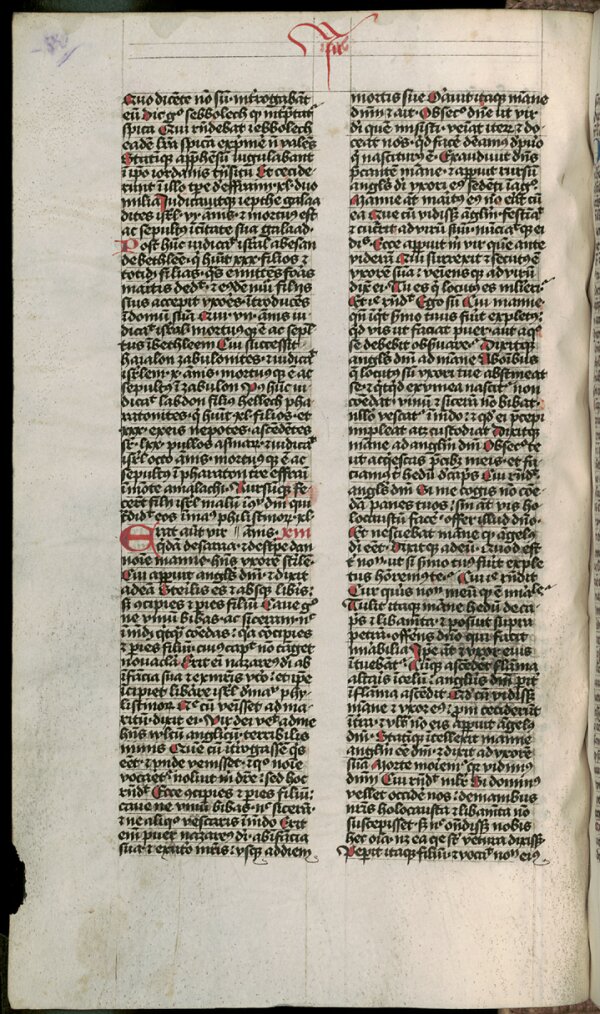 Quo dicēte nō sū· īterogabāt
eū dic g° sebbolech q̄ īterp̄tat̉
spica Qui rn̄debat tebbolech
eadē lr̄a spica exp̄mē n̄ valēs
Statiq; app̄hensū iugulabant
ī ipo iordanis trāsitu Et cecide
runt ī illo tp̄e de effraim· xl· duo
milia Iudicauitq; iepthe galaa
dites isrl̄· vj· annis· ⁊ mortuus est
ac sepultꝰ ī ciuitate sua galaad·
Post hūc iudicauit isrl̄ abesan
de bethleē· q̄ habuit xxx· filios ⁊
totidē filias· q̄s emittens foras
maritis dedit· ⁊ eiꝰdē nūi filijs
suis accepit vxores ītroducēs
ī domū suā Qui· vij· annis iu
dicauit isrl̄ mortuusq; ē ac sepul
tus ī bethleem Cui successit
haialon zabulonites· ⁊ iudicauit
isrlem· x· ānis· mortuusq; ē ac
sepultꝰ ī zabulon Post hūc iu
dicauit labdon filius hellech pha
ratonites· q̄ habuit xl· filios· et
xxx· ex eis nepotes· ascēdētes
sr̄ lxx· pullos asinarum· ⁊ iudicauit
isrl̄ octo ānis· mortuusq; ē ac
sepultꝰ ī pharaton tre effraī
ī mōte amalachi Rursūq; fe
cerūt filij isrl̄ malū ī ꝯsp̄cu dn̄i qui
t̄didit eos ī manꝰ philistinor̄· xl·
Erat aūt vir annis· xiii
q̄dā de saraa· ⁊ de stirpe dan
noīe manue· hn̄s vxorē sterilē·
Cui apparuit angls̄ dn̄i· ⁊ dixit
ad eā Sterilis es ⁊ absq; libis·
sȝ ꝯcipies ⁊ paries filiū Caue g°
ne vinū bibas· ac siceram· nec
īmūdū q̄cq̄ comedas· q̄a ꝯcipies
⁊ paries filiū· cuiꝰ caput nō tāget
nouacla Erit enī nazareꝰ dī ab
īfācia sua ⁊ ex mr̄is vtero· ⁊ ipe
īcipiet libare isrl̄ de manu phy
listinor̄ Que cū venisset ad ma
ritū· dixit ei· Vir dei venit ad me
hn̄s vultū anglicū· terribilis
nimis Quē cū īterrogassē q̄s
eēt· ⁊ vnde venisset· ⁊ quo noīe
vocaretur· noluit m̄ dicere· sed hoc
rn̄dit Ecce ꝯcipies ⁊ paries filiū·
caue ne vinū bibas· nec siceram·
⁊ ne aliquo vescaris īmūdo Erit
enī puer nazareꝰ dī· ab īfācia
sua· ⁊ ex vtero mr̄is· vsq; ad diem
mortis sue Orauit itaq; māne
dn̄m ⁊ ait· Obsecro dn̄e ut vir
dī quē misisti· veniat iterū ⁊ do
ceat nos· qd̄ facere debeamꝰ de puero
q̄ nasciturꝰ ē· Exaudiuit dn̄s
p̄cante mane· ⁊ apparuit rursū
angls̄ dī vxori eiꝰ sedēti ī agro·
Manue aūt maritꝰ eiꝰ nō erat cū
ea Que cū vidisset āglm̄· festīauit
⁊ cucurrit ad virū suū· nūciauitq; ei
dicēs Ecce apparuit m̄ vir quē ante
viderā Qui surrexit ⁊ secutꝰ ē
vxorē suā· ⁊ veniens ad virū
dixit ei· Tu es q̄ locutꝰ es mulieri·
Et ille rn̄dit Ego sū Cui manue·
qn̄ īquit sermo tuus fūit expletꝰ·
qd̄ vis ut faciat puer· aut a quo
se debebit obseruare· Dixitq;
angls̄ dn̄i ad mane Ab oībus
q̄ locutꝰ sū vxori tue abstineat
se· ⁊ q̄cqd̄ ex vinea nascitur non
comedat· vinū ⁊ sicerā nō bibat·
nullo vescatur īmūdo· ⁊ qd̄ ei p̄cepi
impleat atq; custodiat Dixitq;
mane ad anglm̄ dn̄i Obsecro te
ut acquiescas p̄cibꝫ meis· et fa
ciamꝰ t̄ hedū de cap̄s Cui rn̄dit
angls̄ dn̄i Si me cogis nō come
dā panes tuos· sin aūt vis ho
locaustū facere· offer illud dn̄o·
Et nesciebat mane q̄ agelꝰ
dī eēt· Dixitq; ad eū· Quod est
t̄ nomen· ut si sermo tuꝰ fūit exple
tus· honoremꝰ te· Cui ille rn̄dit
Cur q̄ris nomen meū q̄ ē mirale·
Tulit itaq; mane hedū de ca
p̄s ⁊ libamīta· ⁊ posuit supra
petrā· offerens dn̄o qui facit
mirabilia Ipe aūt ⁊ vxor eius
ītuebātur Cumq; ascēderet flāma
altaris ī celū· anglus dn̄i pariter
ī flāma ascēdit Qd̄ cū vidissēt
mane ⁊ vxor eiꝰ· proni ceciderunt
ī terrā· ⁊ vltra nō eis apparuit agelꝰ
dn̄i· Statimq; ītellexit manue
anglm̄ eē dn̄i· ⁊ dixit ad vxorē
suā Morte moriemur quia vidimꝰ
dn̄m Cui rn̄dit mulier Si dominꝰ
vellet occidere nos· de manibus
nr̄is holocausta ⁊ libamīta nō
suscepisset· sȝ nec on̄disset nobis
hec oīa· nec ea que st̄ ventura dixisset
Peperit itaq; filiū· ⁊ vocauit nomen eiꝰ